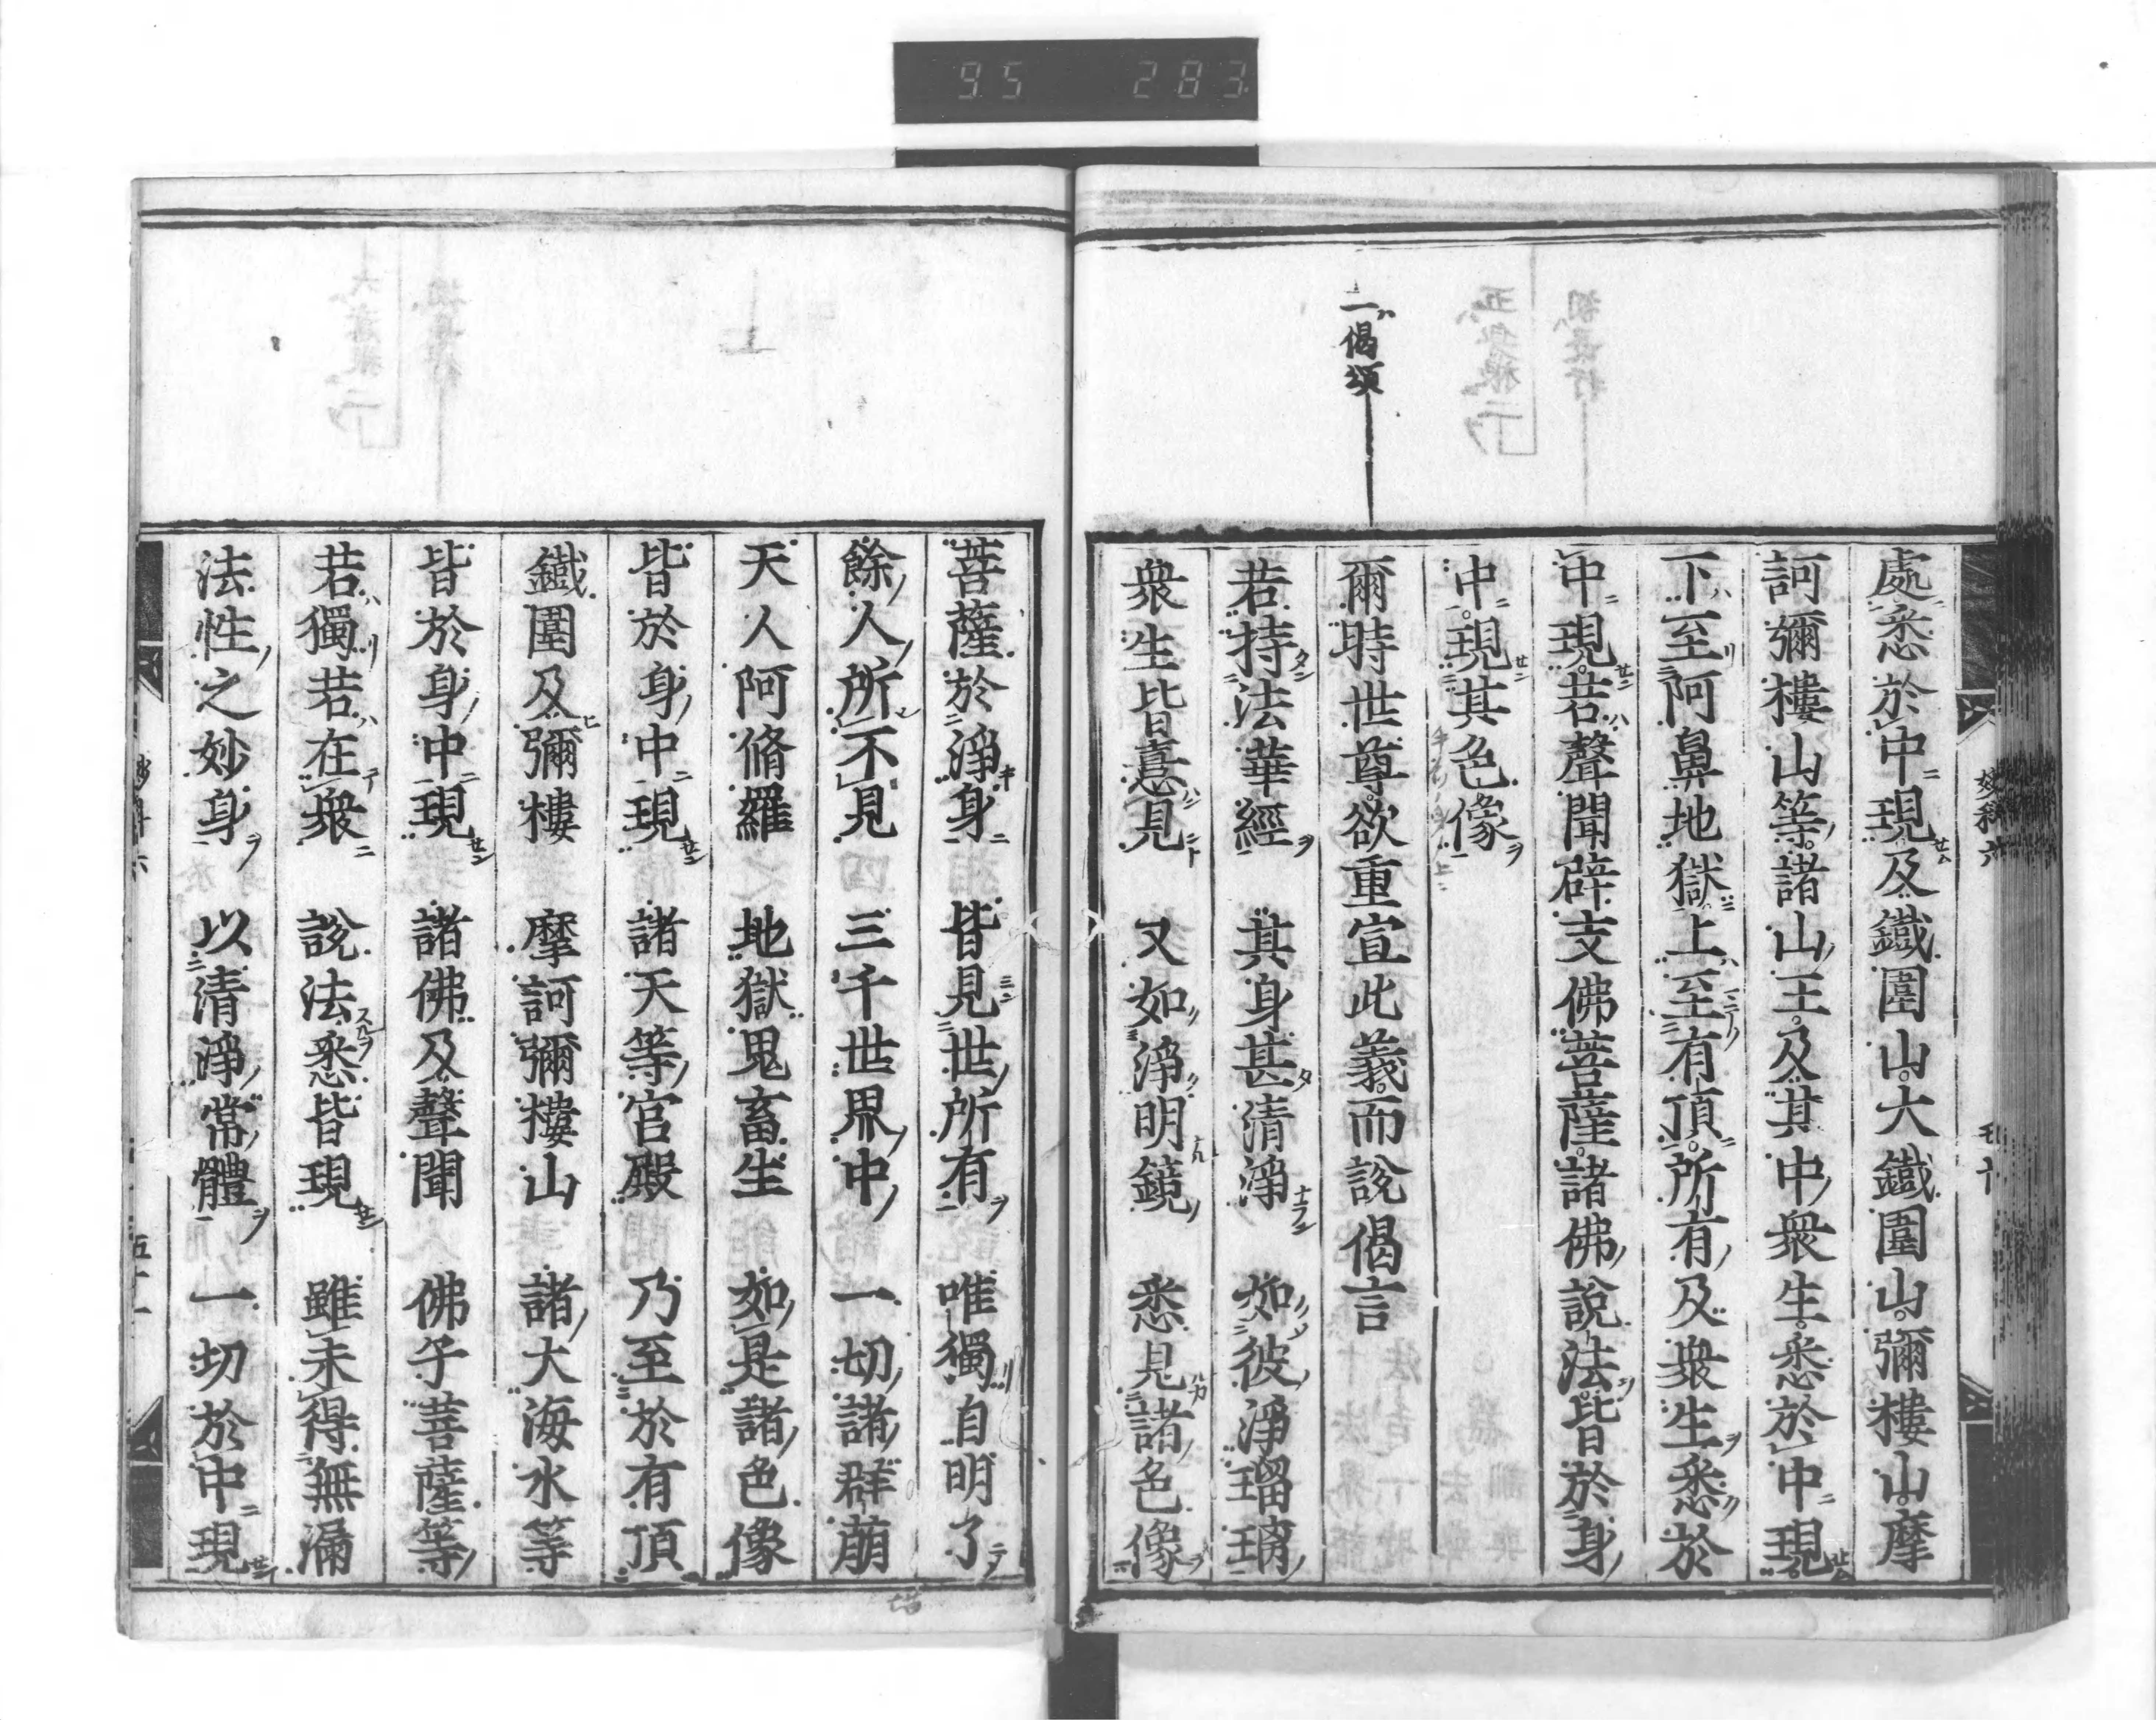 95 283
二偈頌
處悉於中現及鐵圍山大鐵圍山彌樓山摩
訶彌樓山等諸山王及其中衆生悉於中現
下至阿鼻地獄上至有頂所有及衆生悉於
中現若聲聞辟支佛菩薩諸佛說法皆於身
中現其色像
爾時世尊欲重宣此義而說偈言
若持法華經 其身甚清淨 如彼淨瑠璃
衆生皆憙見 又如淨明鏡 悉見諸色像
菩薩於淨身 皆見世所有 唯獨自明了
餘人所不見 三千世界中 一切諸群萠
天人阿脩羅 地獄鬼畜生 如是諸色像
皆於身中現 諸天等宮殿 乃至於有頂
鐵圍及彌樓 摩訶彌樓山 諸大海水等
皆於身中現 諸佛及聲聞 佛子菩薩等
若獨若在衆 說法悉皆現 雖未得無漏
法性之妙身 以清淨常體 一切於中現